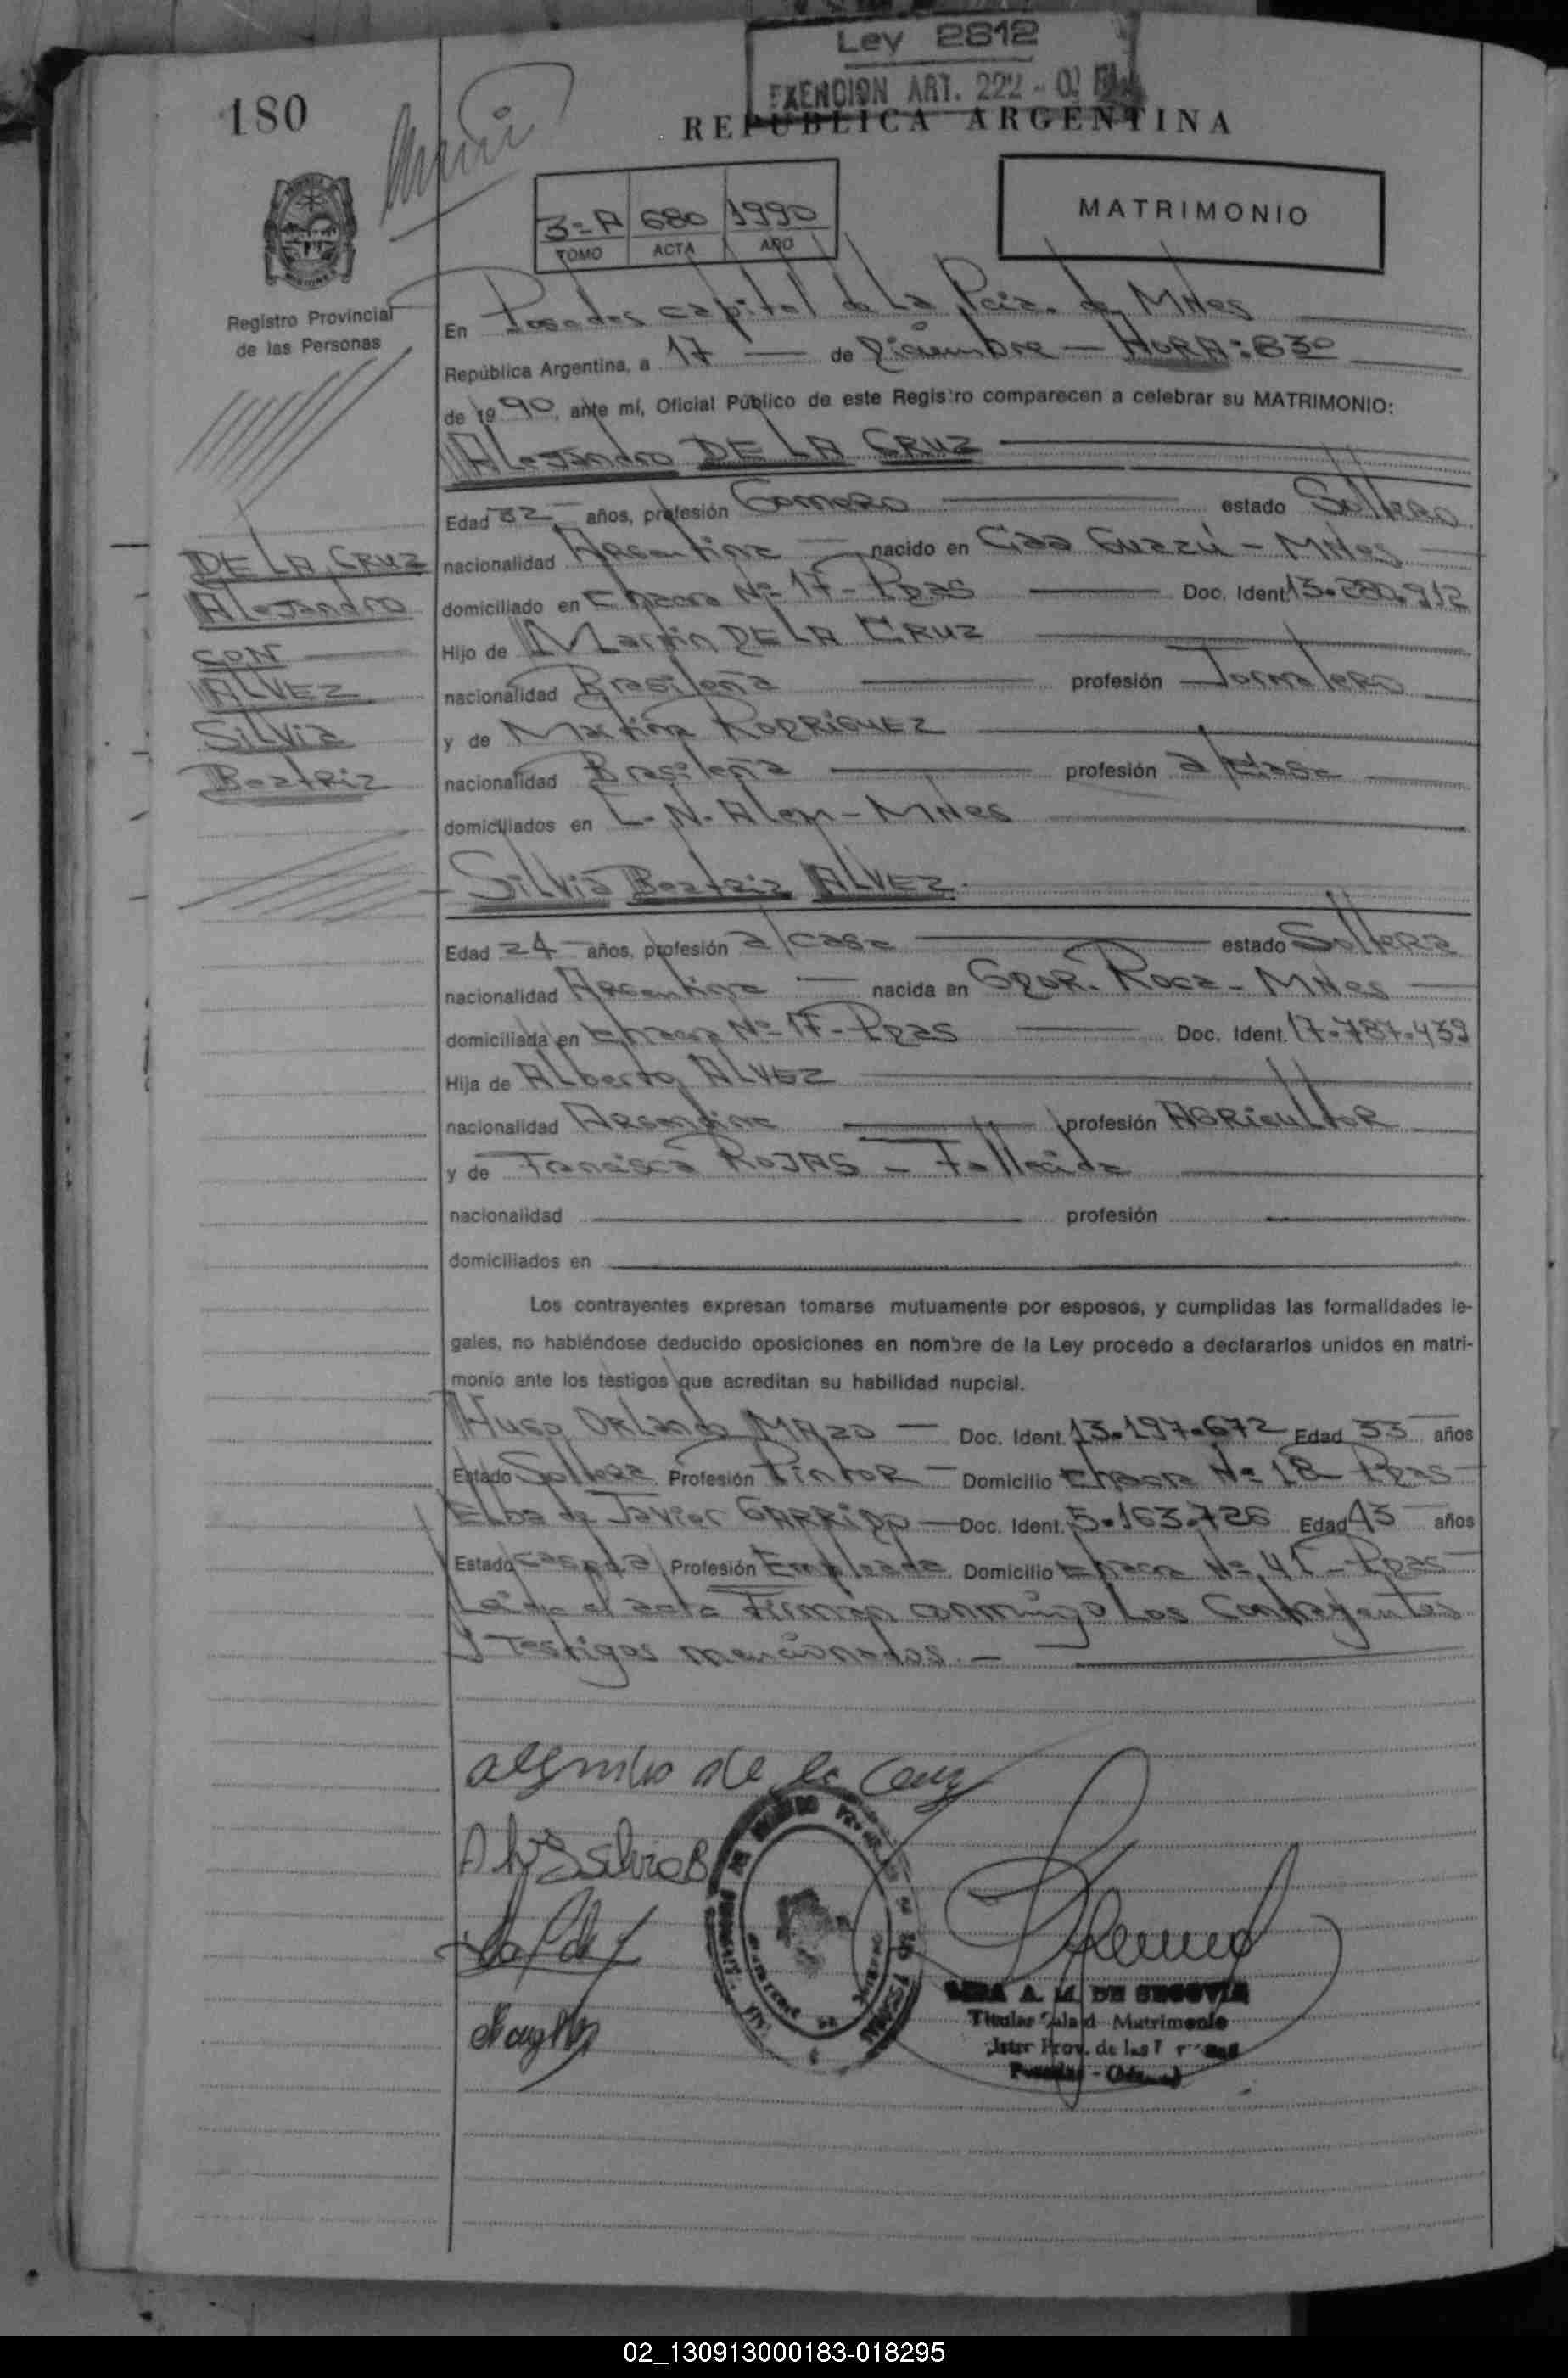 Ley 2812
EXENCION ART. 222
180
REPUBLICA ARGENTINA
3=A 680 1990
TOMO ACTA AÑO
MATRIMONIO
Registro Provincial
de las Personas
En Posadas capital de La Pcia. de MNes
República Argentina, a 17 de Diciembre - HORA: 830
de 1990, ante mí, Oficial Público de este Registro comparecen a celebrar su MATRIMONIO:
Alejandro DE LA CRUZ
Edad 32 años, profesión Gomero estado Soltero
DE LA CRUZ
Alejandro
CON
ALVEZ
Silvia
Beatriz
nacionalidad Argentina nacido en Guazú - MNes
domiciliado en Chacra Nº 17 - Pdas Doc. Ident. 13.280.912
Hijo de Martin DE LA CRUZ
nacionalidad Brasileña profesión Jornalero
y de Martina RODRIGUEZ
nacionalidad Brasileña profesión a/casa
domiciliados en L.N. Alem - MNes
Silvia Beatriz ALVEZ.
Edad 24 años, profesión a/casa estado Soltera
nacionalidad Argentina nacida en Gdor. Roca - MNes
domiciliada en Chacra Nº 17 - Pdas Doc. Ident. 17.787.439
Hija de Alberto ALVEZ
nacionalidad Argentina profesión AGRicultor
y de Francisca ROJAS - Fallecida
nacionalidad profesión
domiciliados en
Los contrayentes expresan tomarse mutuamente por esposos, y cumplidas las formalidades le-
gales, no habiéndose deducido oposiciones en nombre de la Ley procedo a declararlos unidos en matri-
monio ante los testigos que acreditan su habilidad nupcial.
Hugo Orlando MAZO - Doc. Ident. 13.197.672 Edad 33 años
Estado Profesión Pintor - Domicilio Chacra Nº 18 - Pdas
Elba de Javier GARRIDO - Doc. Ident. 5.163.726 Edad 43 años
Estado casada Profesión Empleada Domicilio Chacra Nº 41 - Pdas
Leida el acta Firman conmigo Los Contrayentes
y Testigos mencionados. -
de la Cruz
Silvia B
A. M. DE SEGOVIA
Titular Sala d Matrimonio
Prov. de las
Posadas - (Misiones)
02_130913000183-018295